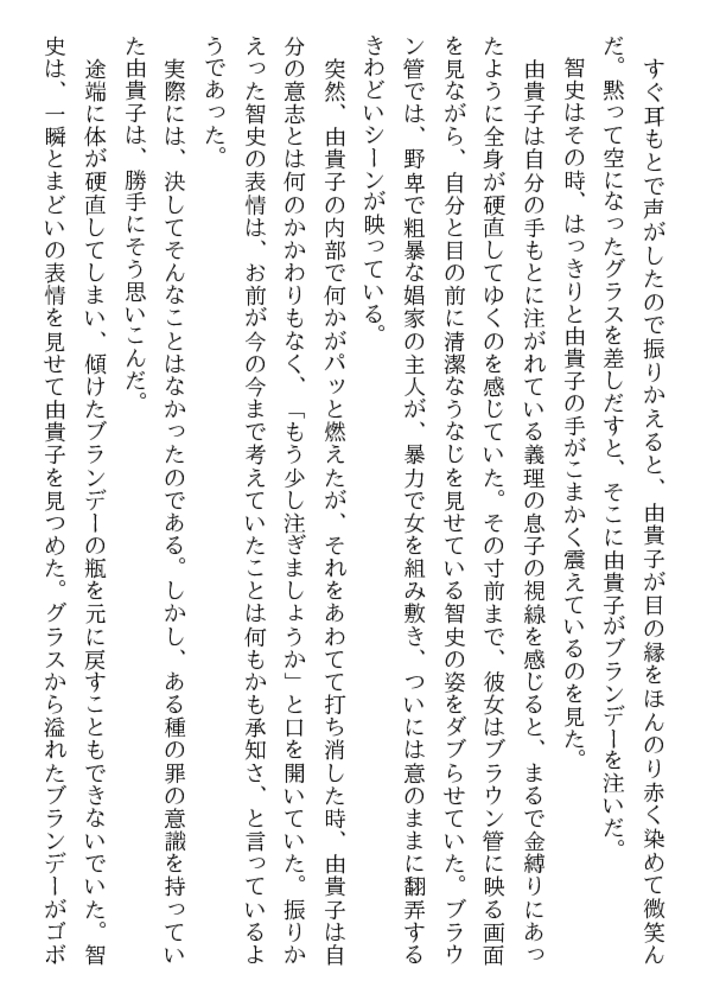 すぐ耳もとで声がしたので振りかえると、由貴子が目の縁をほんのり赤く染めて微笑ん
だ。黙って空になったグラスを差しだすと、そこに由貴子がブランデーを注いだ。
智史はその時、はっきりと由貴子の手がこまかく震えているのを見た。
由貴子は自分の手もとに注がれている義理の息子の視線を感じると、まるで金縛りにあっ
たように全身が硬直してゆくのを感じていた。その寸前まで、彼女はブラウン管に映る画面
を見ながら、自分と目の前に清潔なうなじを見せている智史の姿をダブらせていた。ブラウ
ン管では、野卑で粗暴な娼家の主人が、暴力で女を組み敷き、ついには意のままに翻弄する
きわどいシーンが映っている。
突然、由貴子の内部で何かがパッと燃えたが、それをあわてて打ち消した時、由貴子は自
分の意志とは何のかかわりもなく、「もう少し注ぎましょうか」と口を開いていた。振りか
えった智史の表情は、お前が今の今まで考えていたことは何もかも承知さ、と言っているよ
うであった。
実際には、決してそんなことはなかったのである。しかし、ある種の罪の意識を持ってい
た由貴子は、勝手にそう思いこんだ。
途端に体が硬直してしまい、傾けたブランデーの瓶を元に戻すこともできないでいた。智
史は、一瞬とまどいの表情を見せて由貴子を見つめた。グラスから溢れたブランデーがゴボ